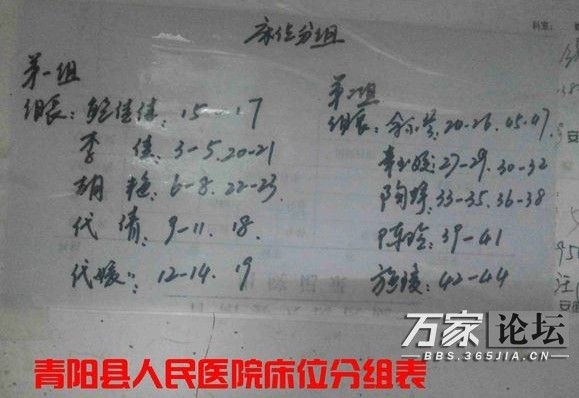 床位分组
第一组
组长:鲍佳佳:15-17
李佳:3-5.20-21
胡艳:6-8.22-23
代倩:9-11.18.
代媛:12-14.19
第二组
组长:余示兰:24-26.45.47
章小姣:27-29.30-32
陶婷:33-35.36-38
陈晗:39-41
施璟:42-44
科室:
万家论坛
BBS.365JIA.CN
青阳县人民医院床位分组表